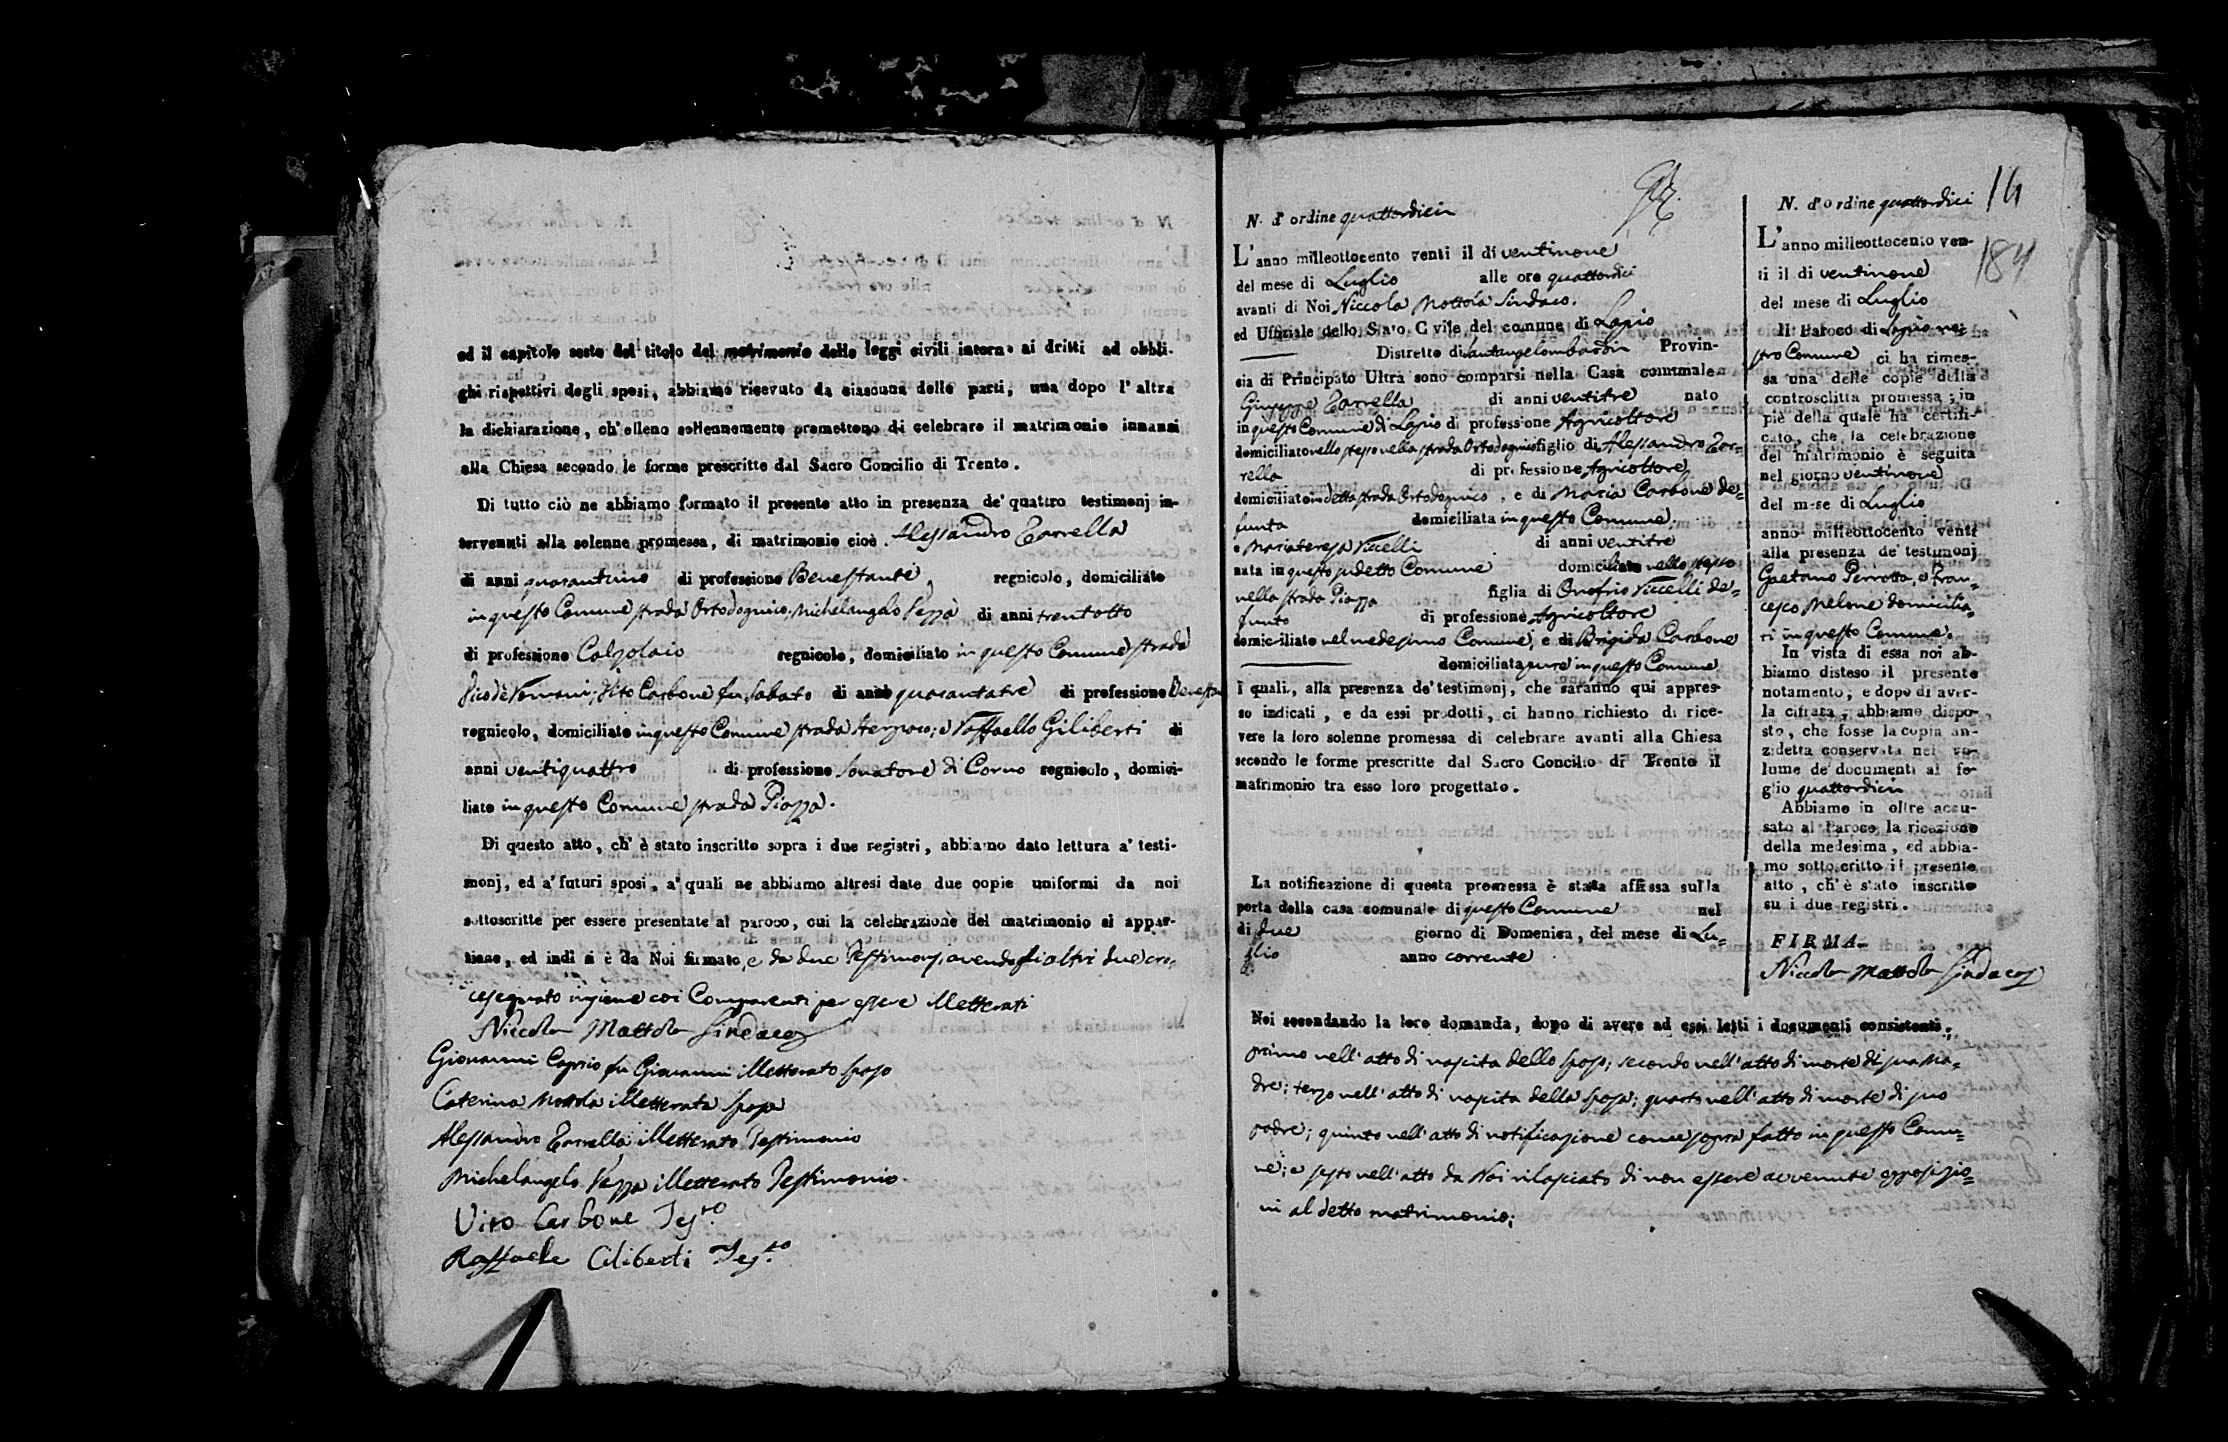 ed il capitolo sesto del titolo del matrimonio delle leggi civili intorno ai dritti ad obbli-
ghi rispettivi degli sposi, abbiamo ricevuto da ciascuna delle parti, una dopo l'altra
la dichiarazione, ch'elleno sollennemente promettono di celebrare il matrimonio innanzi
alla Chiesa secondo le forme prescritte dal Sacro Concilio di Trento.
Di tutto ciò ne abbiamo formato il presente atto in presenza de' quattro testimonj in-
tervenuti alla solenne promessa, di matrimonio cioè. Alessandro Torrella
di anni quarantuno di professione Benestante regnicolo, domiciliato
in questo Comune strada Ortodognico; Michelangelo Pezza di anni trentotto
di professione Calzolaio regnicolo, domiciliato in questo Comune strada
Vito Carbone fu Sabato di anni quarantatre di professione Benestan
regnicolo, domiciliato in questo Comune strada e Raffaello Giliberti di
anni ventiquattro di professione Sonatore di Corno regnicolo, domici-
liato in questo Comune strada Piazza.
Di questo atto, ch' è stato inscritto sopra i due registri, abbiamo dato lettura a' testi-
monj, ed a' futuri sposi, a' quali ne abbiamo altresì date due copie uniformi da noi
sottoscritte per essere presentate al paroco, cui la celebrazione del matrimonio si appar-
tiene, ed indi si è da Noi firmato, e da due Testimonj, avendo gli altri due cro-
cesegnato insieme coi Comparenti per essere illetterati
Niccola Mottola Sindaco
Giovanni Caprio fu Giovanni illetterato sposo
Caterina Mottola illetterata sposa
Alessandro Torrella illetterato Testimonio
Michelangelo Pezza illetterato Testimonio.
Vito Carbone Testo
Raffaele Ciliberti Testo
N. d' ordine quattordici
L'anno milleottocento venti il dì ventinove
del mese di Luglio alle ore quattordici
avanti di Noi Niccola Mottola Sindaco.
ed Uffiziale dello Stato Civile del comune di Lapio
Distretto di Santangelolombardi Provin-
cia di Principato Ultra sono comparsi nella Casa communale
Giuseppe Torrella di anni ventitre nato
in questo Comune di Lapio di professione Agricoltore
domiciliato nello stesso nella strada Ortodognico figlio di Alessandro Tor-
rella di professione Agricoltore
domiciliato in detta strada Ortodognico, e di Maria Carbone de-
funta domiciliata in questo Comune.
e Mariateresa Vicelli di anni ventitre
nata in questo sudetto Comune domiciliata nello stesso
nella strada Piazza figlia di Onofrio Vicelli de-
funto di professione Agricoltore
domiciliato nel medesimo Comune, e di Brigida Carbone
domiciliata pure in questo Comune
I quali, alla presenza de' testimonj, che saranno qui appres-
so indicati, e da essi prodotti, ci hanno richiesto di rice-
vere la loro solenne promessa di celebrare avanti alla Chiesa
secondo le forme prescritte dal Sacro Concilio di Trento il
matrimonio tra esso loro progettato.
La notificazione di questa promessa è stata affissa sulla
porta della casa comunale di questo Comune nel
dì due giorno di Domenica, del mese di Lu-
glio anno corrente
Noi secondando la loro domanda, dopo di avere ad essi letti i documenti consistenti;
primo nell'atto di nascita dello sposo; secondo nell'atto di morte di sua Ma-
dre; terzo nell'atto di nascita della sposa; quarto nell'atto di morte di suo
padre; quinto nell'atto di notificazione come sopra fatto in questo Comu-
ne; e sesto nell'atto da Noi rilasciato di non essere avvenute opposizio-
ni al detto matrimonio;
N. d' ordine quattordici
14
184
L'anno milleottocento ven-
ti il di ventinove
del mese di Luglio
Il Paroco di Lapio no-
stro Comune ci ha rimes-
sa una delle copie della
controscritta promessa; in
piè della quale ha certifi-
cato, che la celebrazione
del matrimonio è seguita
nel giorno ventinove
del mese di Luglio
anno milleottocento venti
alla presenza de' testimonj
Gaetano Perrotta, e Fran-
cesco Melone domicilia-
ti in questo Comune.
In vista di essa noi ab-
biamo disteso il presente
notamento; e dopo di aver-
la cifrata, abbiamo dispo-
sto, che fosse la copia an-
zidetta conservata nel vo-
lume de' documenti al fo-
glio quattordici
Abbiamo in oltre accu-
sato al Paroco la ricezione
della medesima, ed abbia-
mo sottoscritto il presente
atto, ch' è stato inscritto
su i due registri.
FIRMA
Niccola Mottola Sindaco